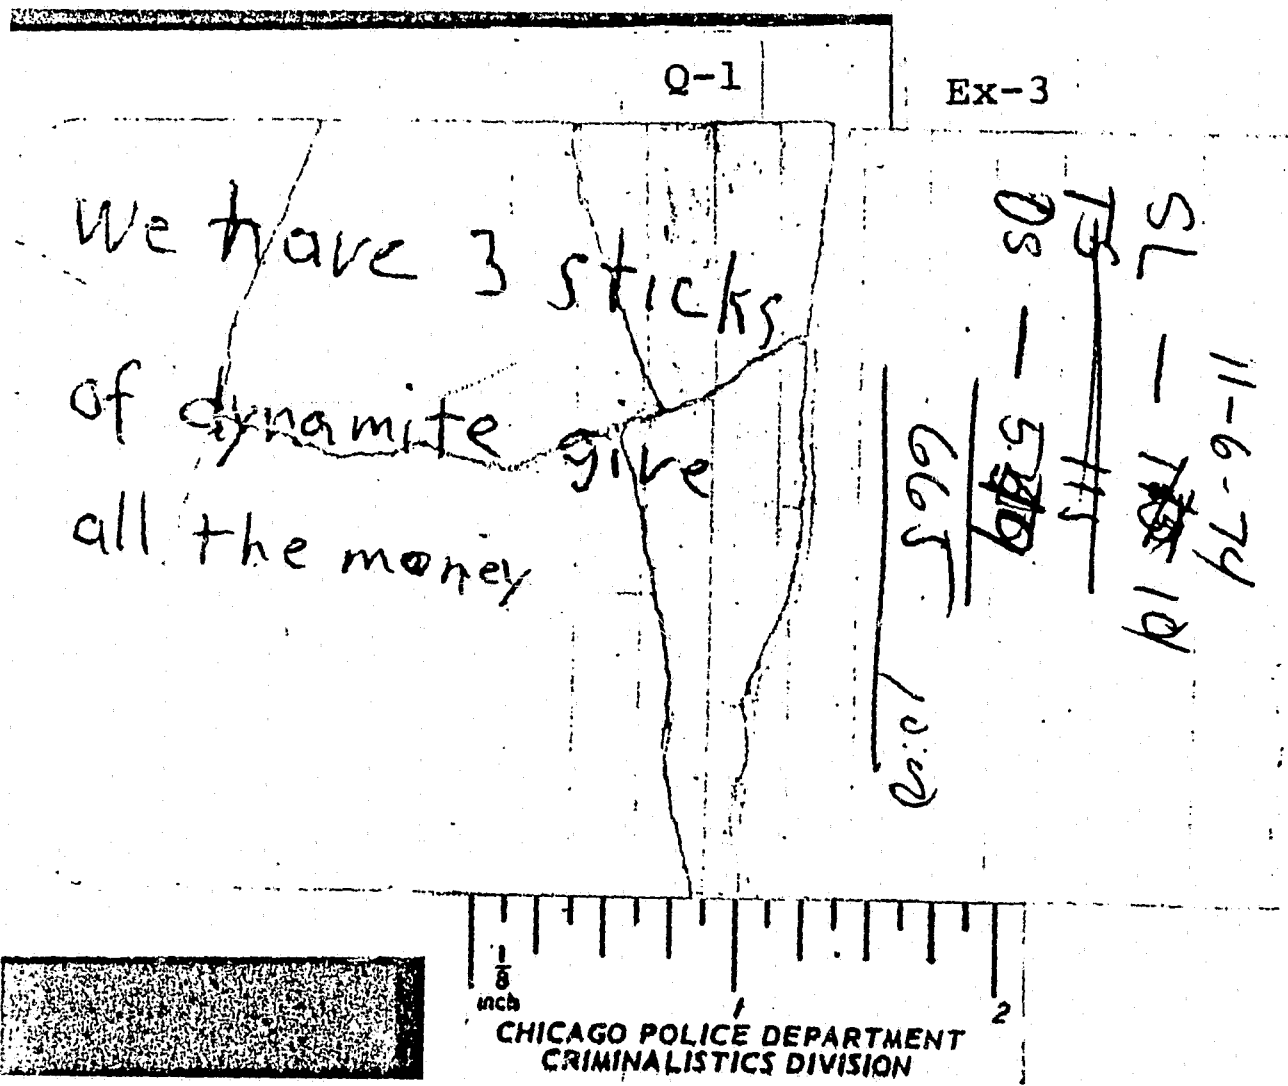 Q-1
Ex-3
We have 3 sticks
of dynamite give
all the money
11-6-74
SL —
DS — 5
665
1/8
inch
1
2
CHICAGO POLICE DEPARTMENT
CRIMINALISTICS DIVISION